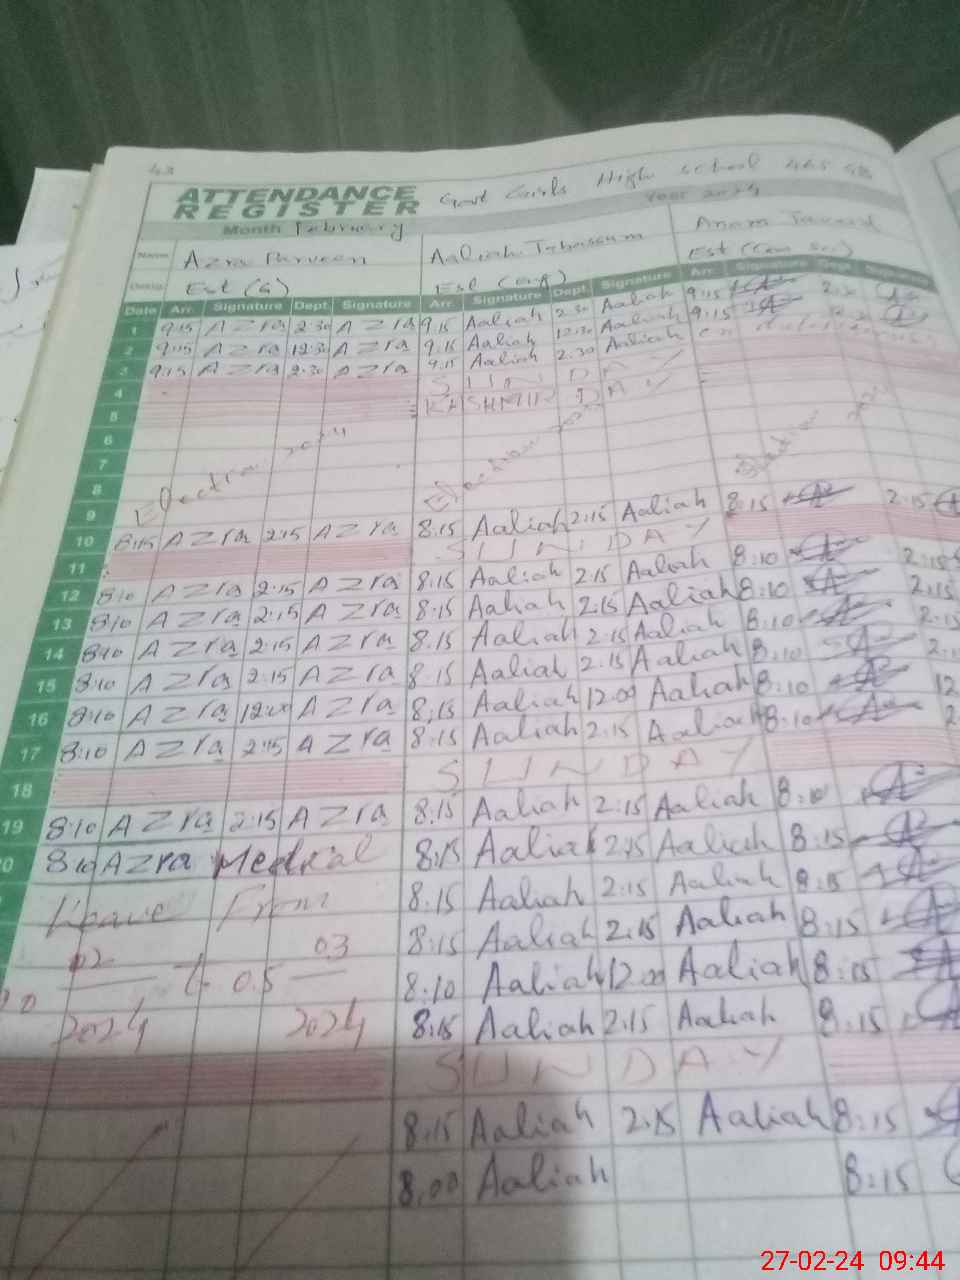 43
ATTENDANCE REGISTER Govt Girls High School
Month February Year 2024
Name Azra Parveen Aaliah Tabassum Anam
Desig. Est (Eng)
Date Arr. Signature Dept. Signature Arr. Signature Dept. Signature Arr. Signature Dept. Signature
1 9:15 AZra 2:30 AZra 9:15 Aaliah 2:30 Aaliah 9:15
2 9:15 AZra 12:30 AZra 9:15 Aaliah 12:30 Aaliah 9:15
3 9:15 AZra 2:30 AZra 9:15 Aaliah 2:30 Aaliah
4 SUNDAY
5 KASHMIR DAY
6
7
8 Election 2024 Election Election 2024
9
10 8:15 AZra 2:15 AZra 8:15 Aaliah 2:15 Aaliah 8:15 2:15
11 SUNDAY
12 8:10 AZra 2:15 AZra 8:15 Aaliah 2:15 Aaliah 8:10 2:15
13 8:10 AZra 2:15 AZra 8:15 Aaliah 2:15 Aaliah 8:10 2:15
14 8:10 AZra 2:15 AZra 8:15 Aaliah 2:15 Aaliah 8:10 2:15
15 8:10 AZra 2:15 AZra 8:15 Aaliah 2:15 Aaliah 8:10
16 8:10 AZra 12:00 AZra 8:15 Aaliah 12.00 Aaliah 8:10 12
17 8:10 AZra 2:15 AZra 8:15 Aaliah 2:15 Aaliah 8:10 2
18 SUNDAY
19 8:10 AZra 2:15 AZra 8:15 Aaliah 2:15 Aaliah 8:10
20 8:10 AZra Medical 8:15 Aaliah 2:15 Aaliah 8:15
Leave From 8:15 Aaliah 2:15 Aaliah 8:15
02 03 8:15 Aaliah 2:15 Aaliah 8:15
05 8:10 Aaliah 12.00 Aaliah 8:15
2024 2024 8:15 Aaliah 2:15 Aaliah 8:15
SUNDAY
8:15 Aaliah 2:15 Aaliah 8:15
8.00 Aaliah 8:15
27-02-24 09:44